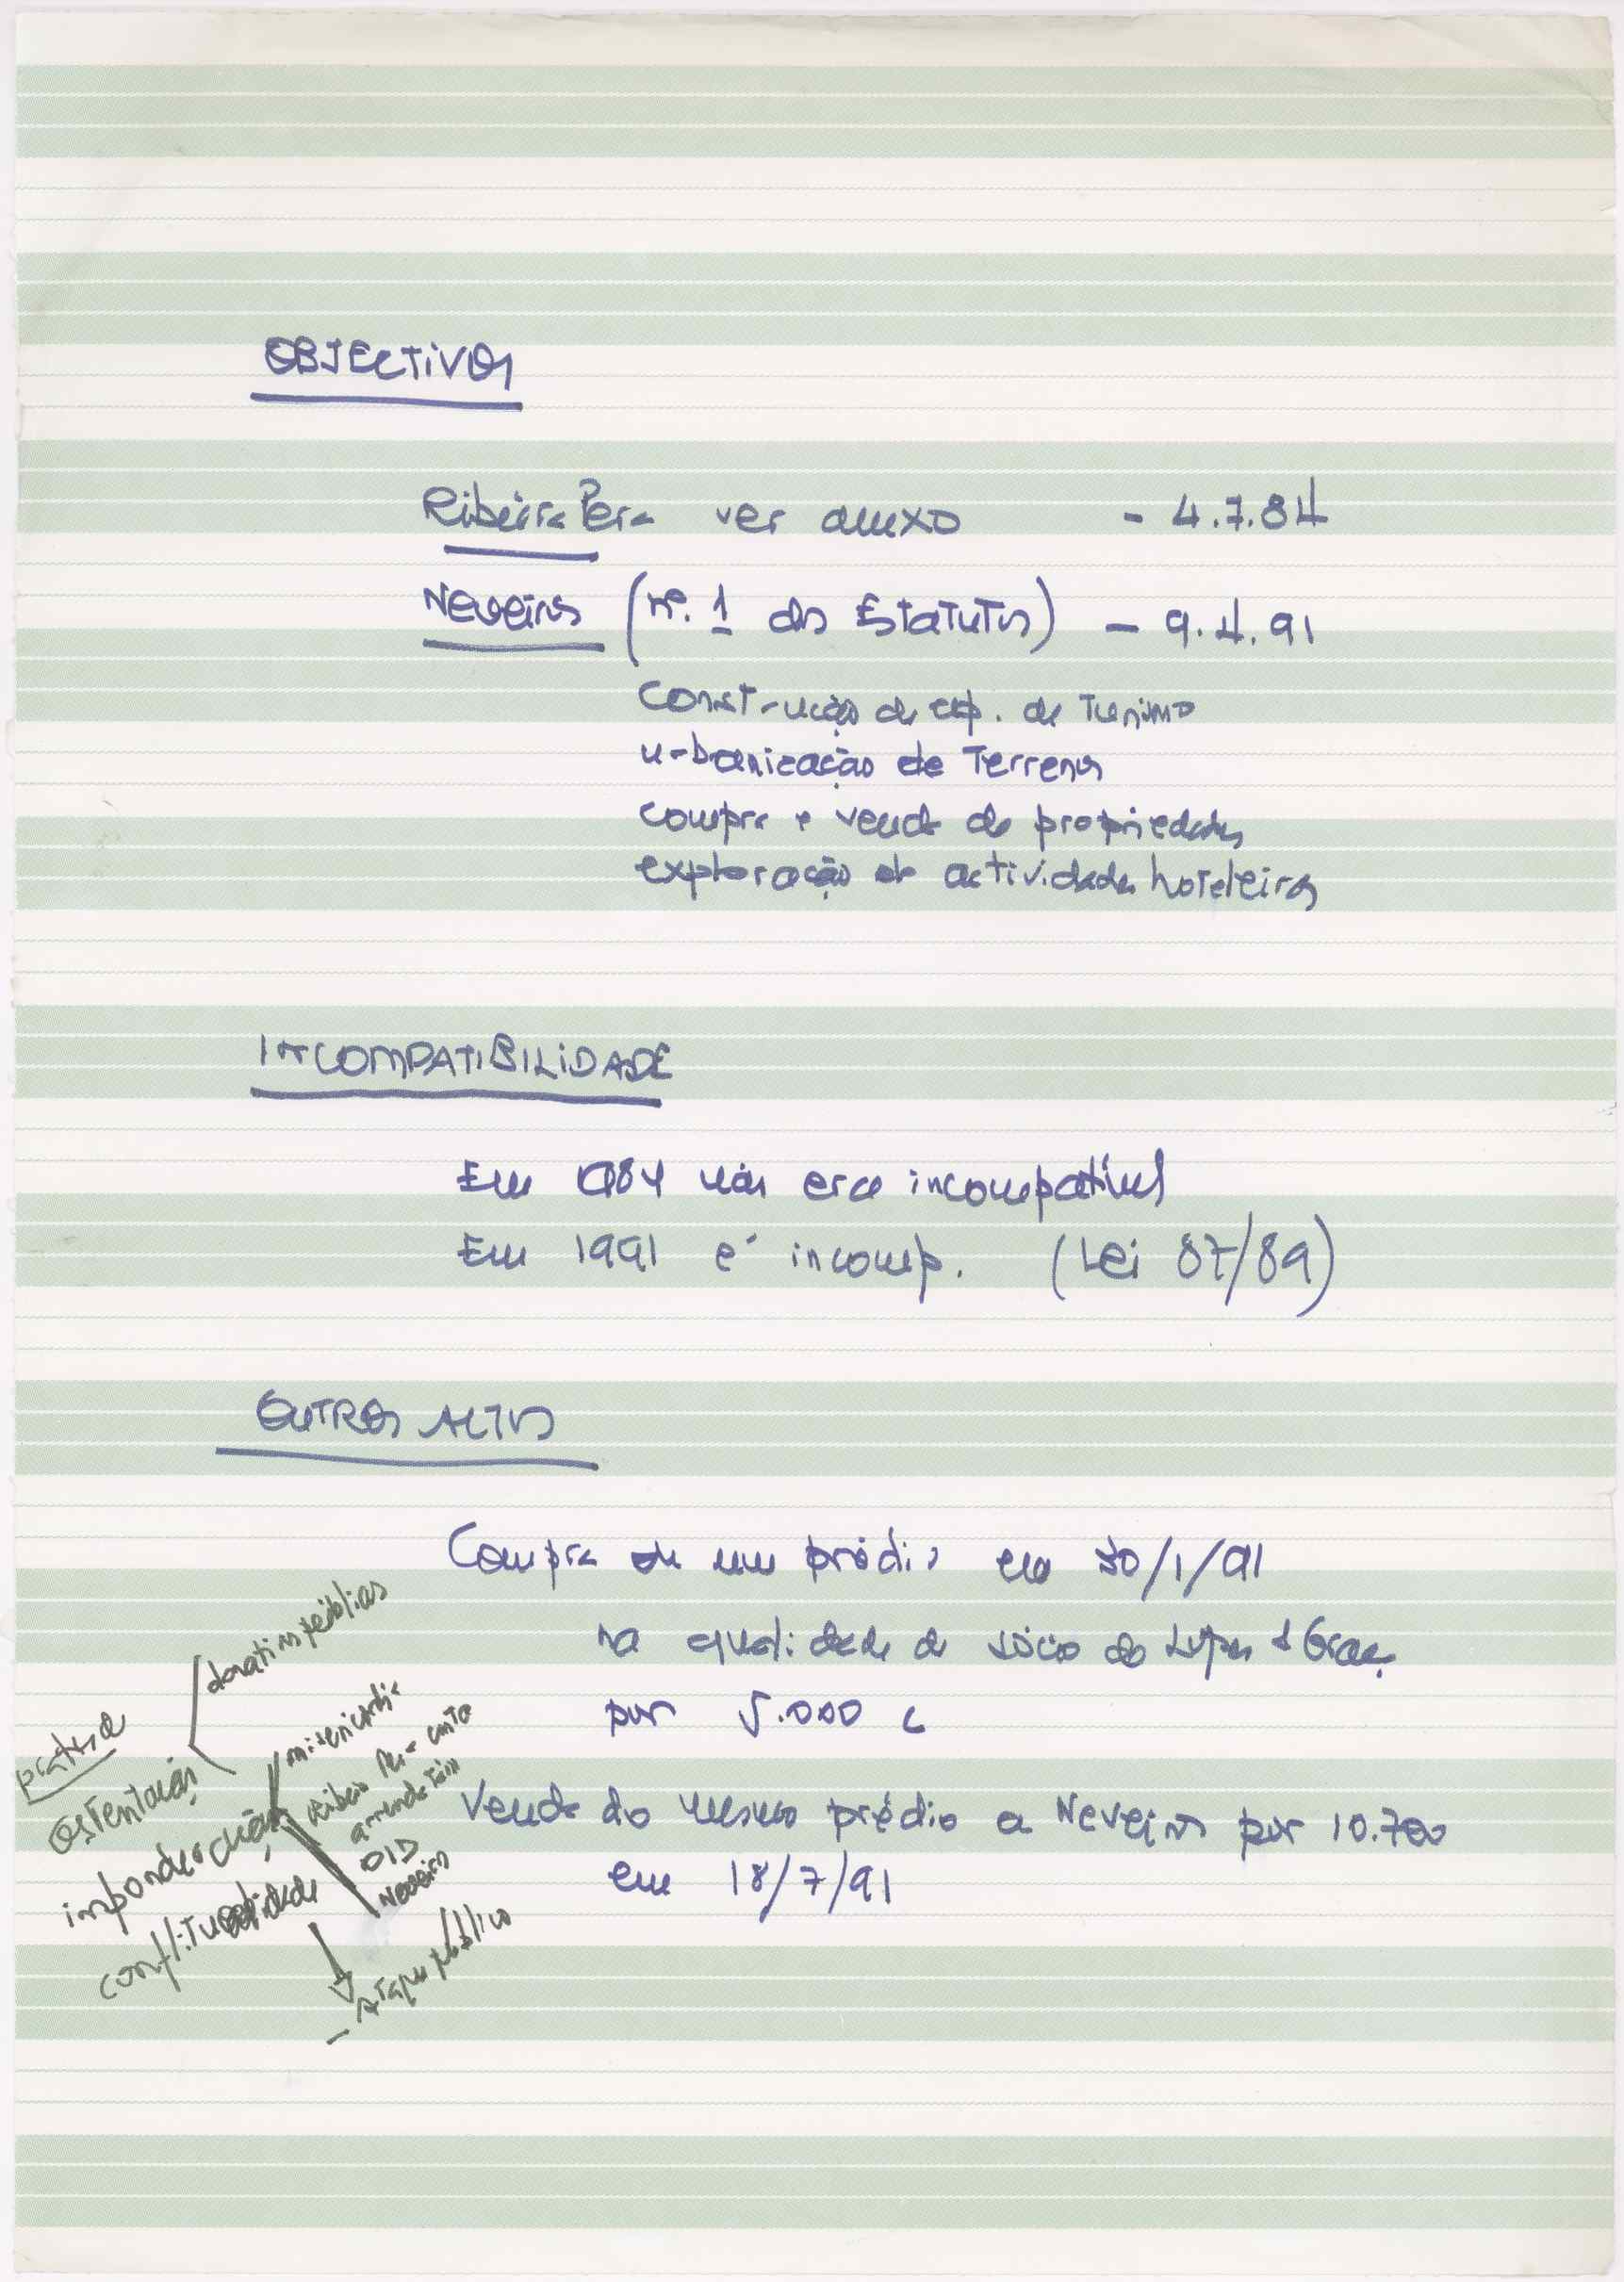 OBJECTIVOS
Ribeira Pera ver anexo - 4.7.84
Neveiros (nº. 1 dos Estatutos) - 9.4.91
Construção de esp. de Turismo
urbanização de Terrenos
compra e venda de propriedades
exploração de actividades hoteleiras
INCOMPATIBILIDADE
Em 1984 não era incompatível
Em 1991 é incomp. (Lei 87/89)
OUTROS ACTOS
Compra de um prédio em 30/1/91
na qualidade de sócio da Lopes & Graça
por 5.000 c
Venda do mesmo prédio a Neveiros por 10.700
em 18/7/91
postura
ostentação
donativos públicos
imponderação
misericórdia
Ribeira Pera conta
arrendatário
DID
Neveiros
conflitualidade
- Ataque público